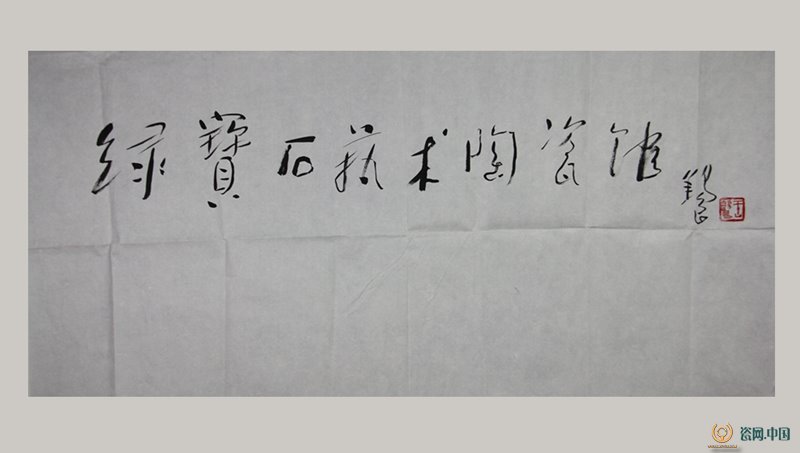 绿寶石藝术陶瓷馆
瓷网.中国